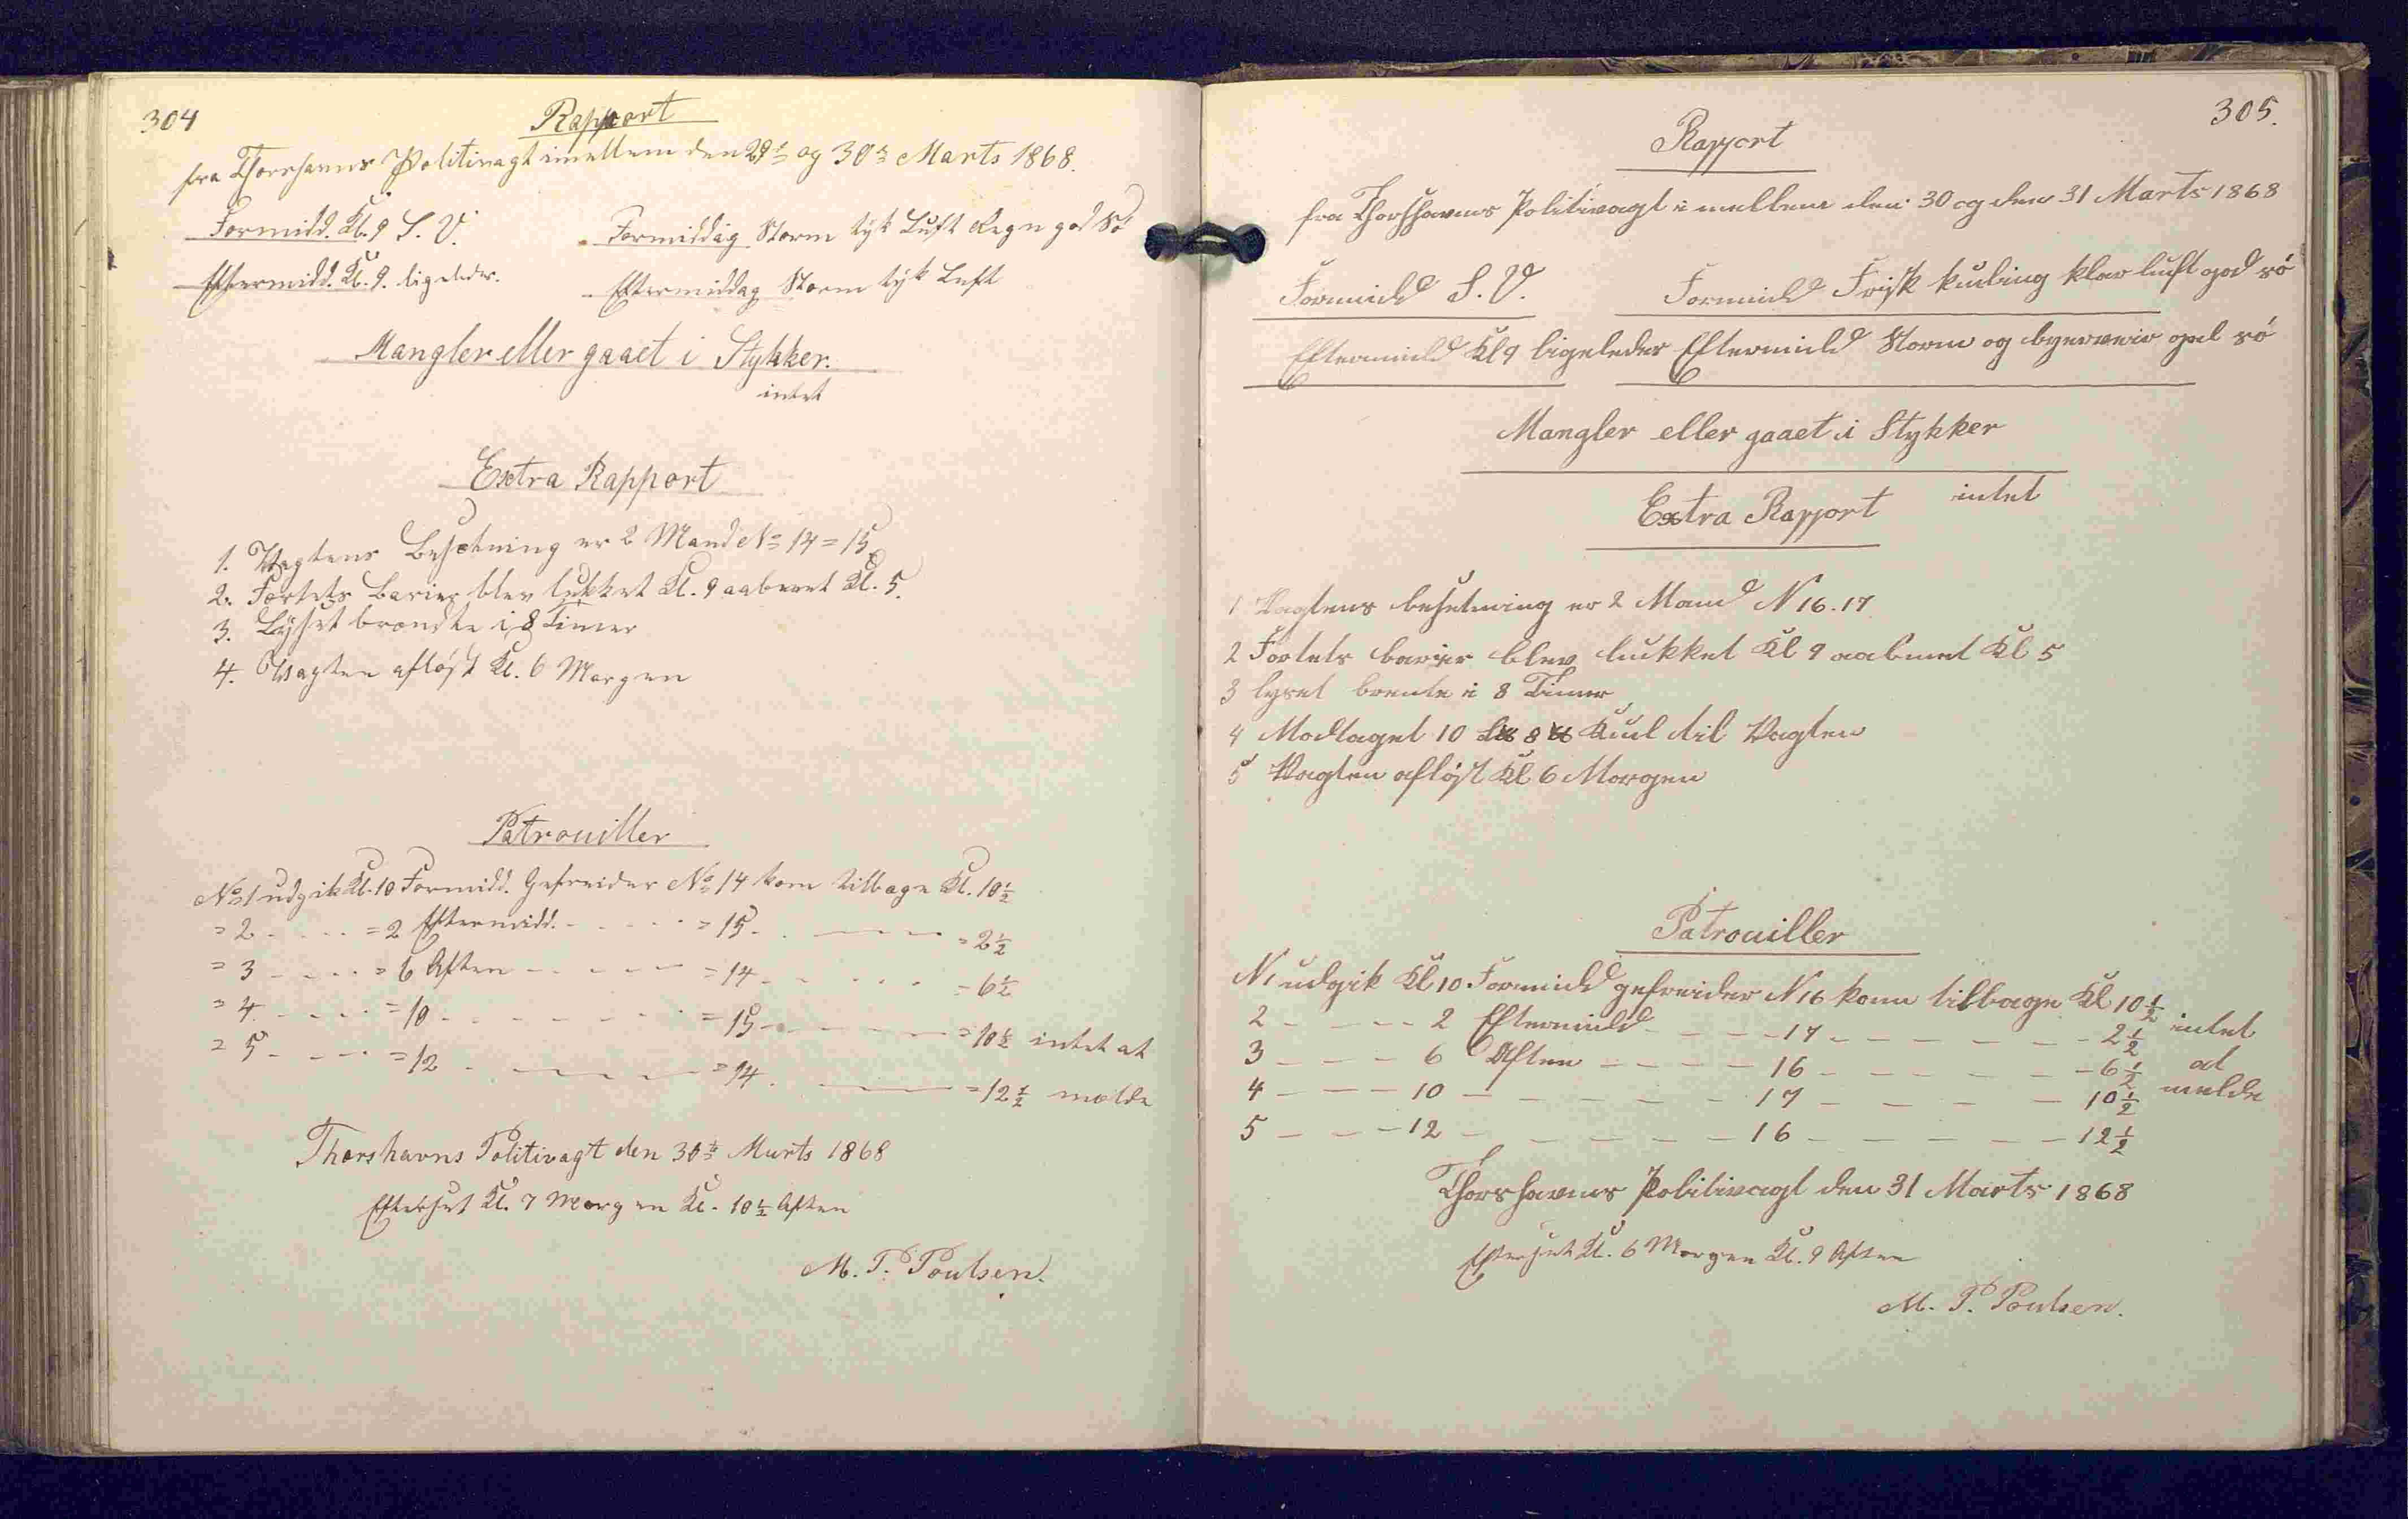 304
Rapport
fra Thorshavns Politivagt imellem den 29de og 30te Marts 1868.
Formidd. Kl. 9 S. V. Formiddag Storm tyk Luft Regn god Sö
Eftermidd. Kl. 9. ligeledes. Eftermiddag Storm tyk Luft
Mangler eller gaaet i Stykker.
intet
Extra Rapport
1. Vagtens Besætning er 2 Mand No 14 = 15
2. Fortets Barier blev lukket Kl. 9 aabnet Kl. 5.
3. Lyset brændte i 8 Timer
4. Vagten afløst Kl. 6 Morgen
Patrouiller
No 1 udgik Kl. 10 Formidd. Gefreider No 14 kom tilbage Kl. 10 1/2
= 2 - - - = 2 Eftermidd. - - - = 15 - - - = 2 1/2
= 3 - - - = 6 Aften - - - = 14 - - - = 6 1/2
= 4 - - - = 10 - - - = 15 - - - = 10 1/2 intet at
= 5 - - - = 12 - - - = 14 - - - = 12 1/2 melde
Thorshavns Politivagt den 30te Marts 1868
Efterset Kl. 7 Morgen Kl. 10 1/2 Aften
M. P. Poulsen.
305.
Rapport
fra Thorshavns Politivagt i mellem den 30 og den 31 Marts 1868
Formidd S. V. Formidd Frisk kuling klar luft god sö
Eftermidd Kl 9 ligeledes Eftermidd Storm og byerveir sö
Mangler eller gaaet i Stykker
intet
Extra Rapport
1 Vagtens besetning er 2 Mand N 16. 17
2 Fortets barier blev lukket Kl 9 aabnet Kl 5
3 lyset brente i 8 Timer
4 Modtaget 10 8 Kul til Vagten
5 Vagten afløst Kl 6 Morgen
Patrouiller
N 1 udgik Kl 10 Formidd gefreider N 16 kom tilbage Kl 10 1/2
2 - - - 2 Eftermidd - - - 17 - - - 2 1/2 intet
3 - - - 6 Aften - - - 16 - - - 6 1/2 at
4 - - - 10 - - - 17 - - - 10 1/2 melde
5 - - - 12 - - - 16 - - - 12 1/2
Thorshavns Politivagt den 31 Marts 1868
Efterset Kl. 6 Morgen Kl. 9 Aften
M. P. Poulsen.